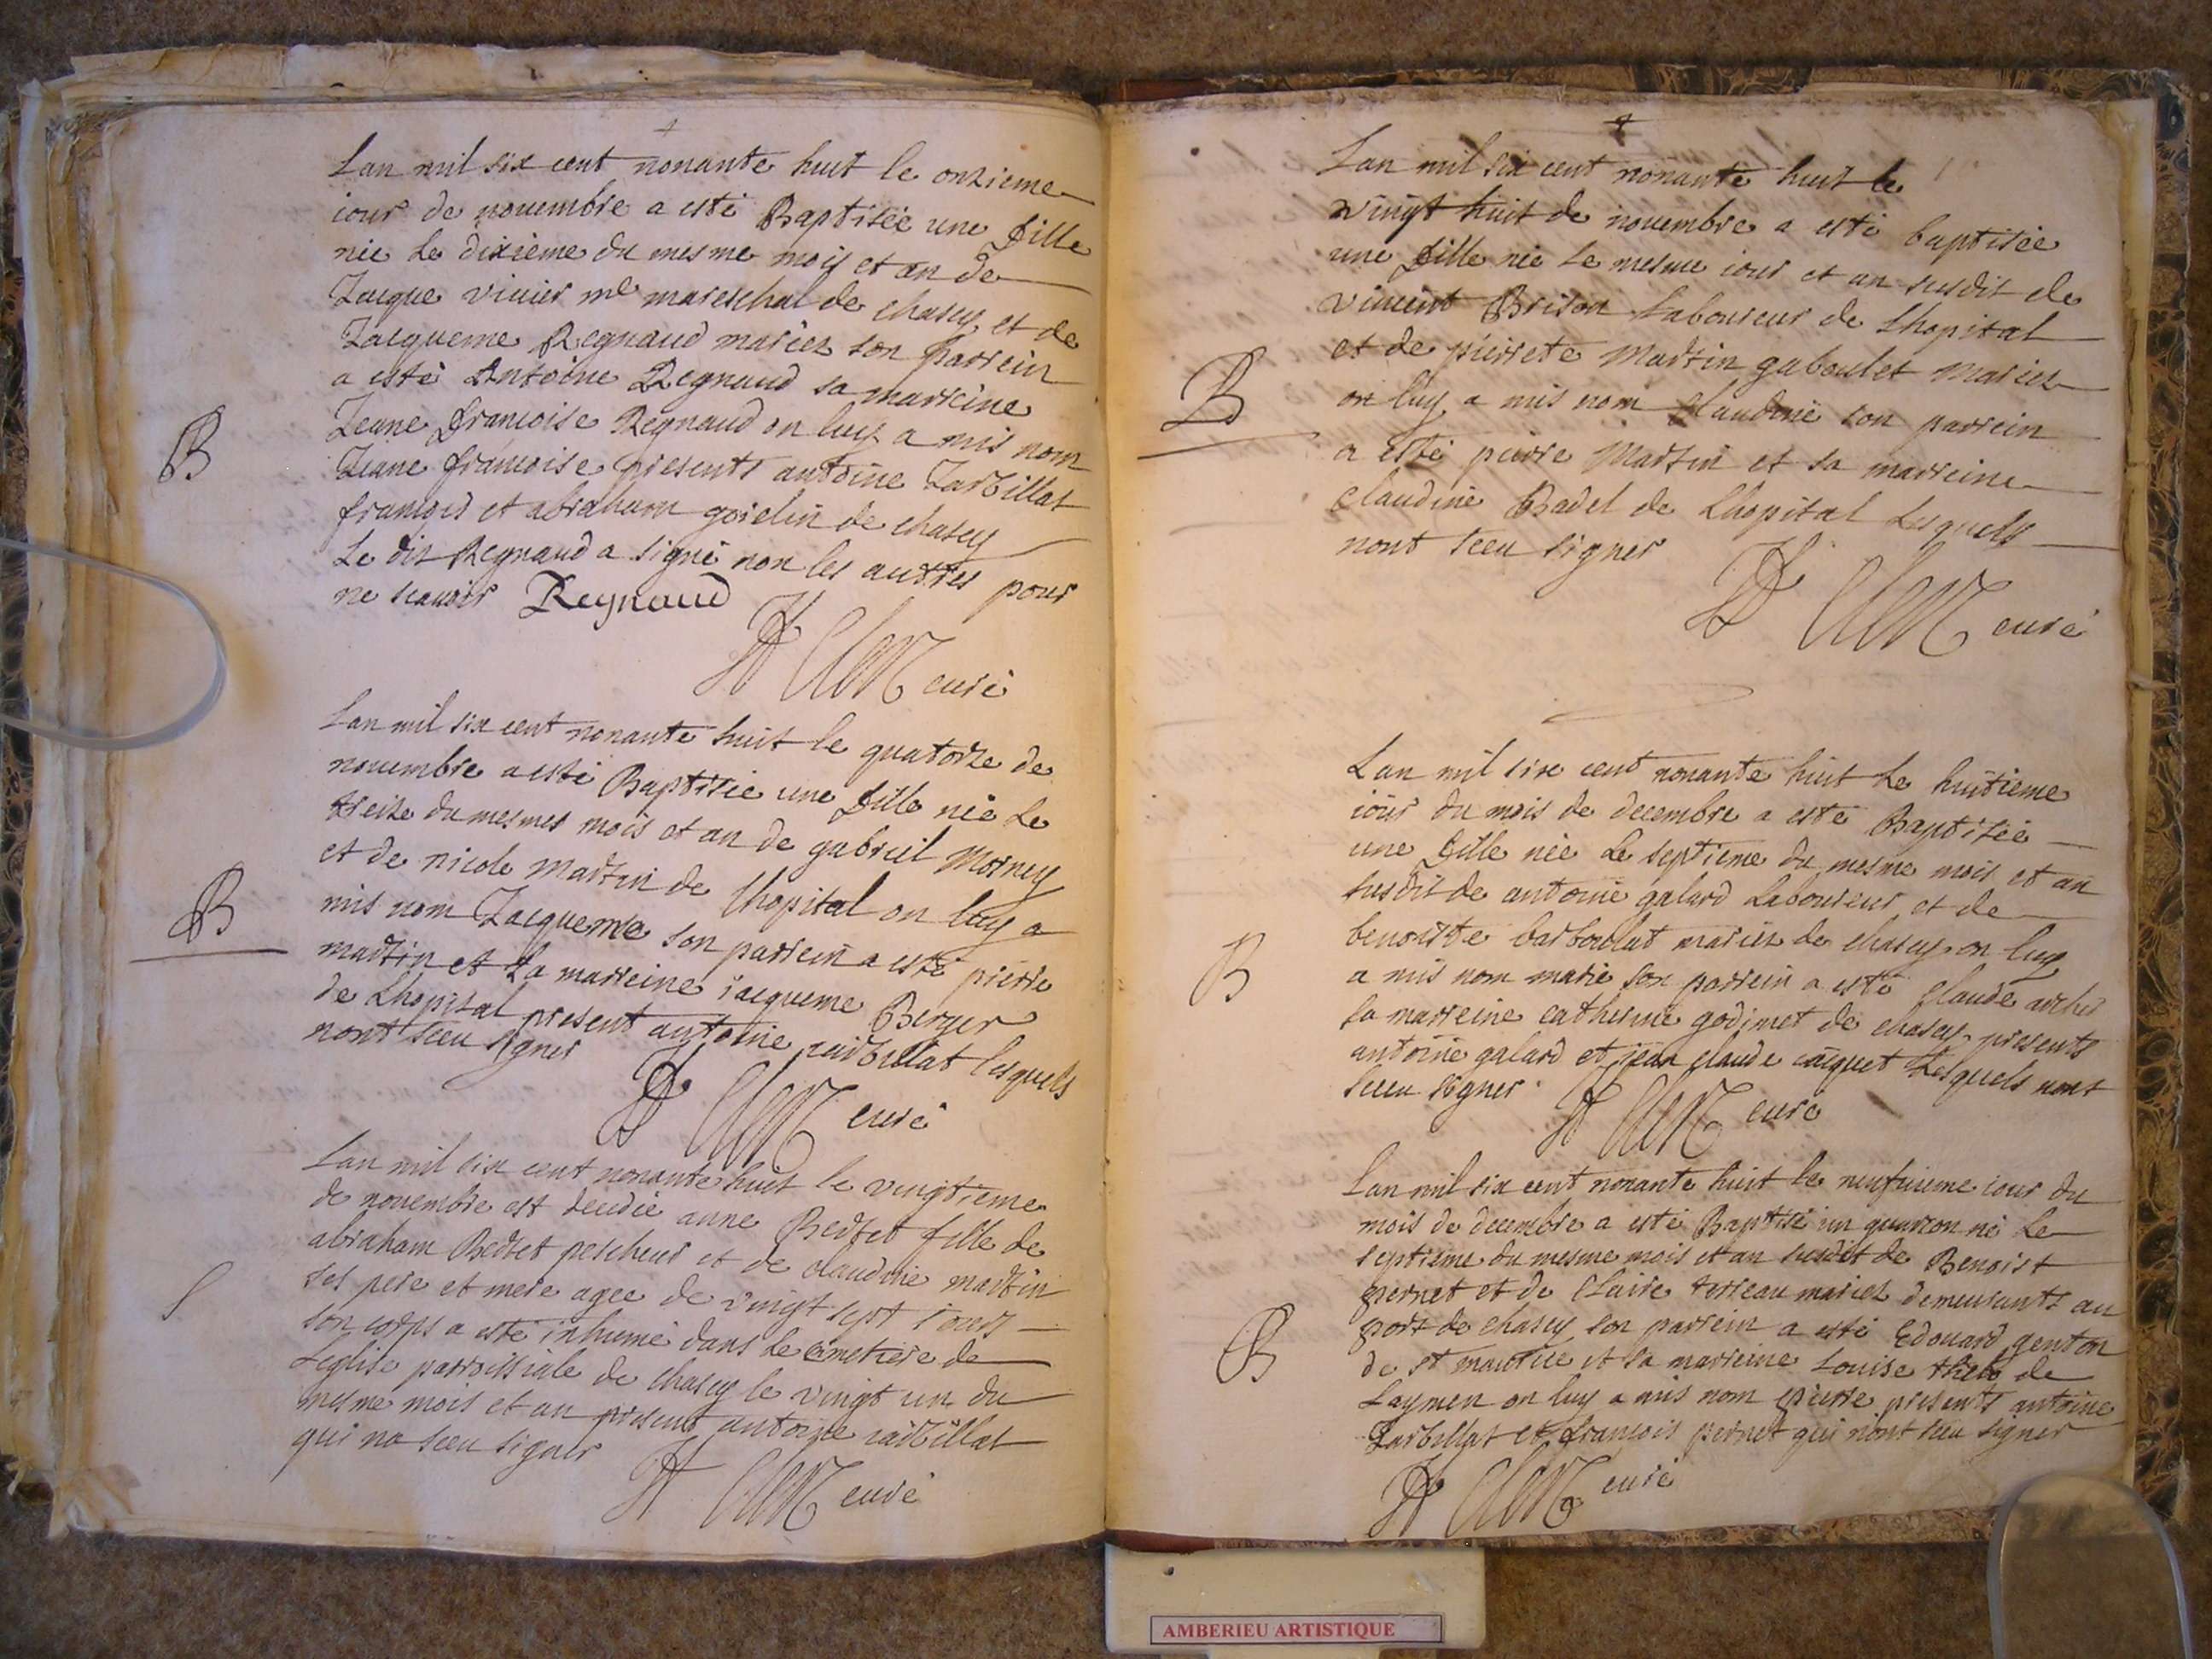 Lan mil six cent nonante huit le onzieme
iour de nouembre a esté Baptisée une fille
née Le dixieme du mesme mois et an de
Jacque viuier me mareschal de chasey et de
Jacqueme Regnaud mariez son parrein
a esté Antoine Regnaud sa marreine
Jeane francoise Regnaud on luy a mis nom
Jeane francoise presents antoine Jarbillat
francois et abraham goielin de chasey
Le dit Regnaud a signé non les autres pour
ne scauoir Regnaud
curé
B
Lan mil six cent nonante huit le quatorze de
nouembre a esté Baptisée une fille née Le
treize du mesmes mois et an de gabriel Morney
et de nicole martin de Lhopital on luy a
mis nom Jacqueme son parrein a esté pierre
martin et La marreine iacqueme Berger
de Lhopital present antoine iarbillat lesquels
nont sceu signer
curé
B
Lan mil six cent nonante huit le vingtieme
de nouembre est decedée anne Bertet fille de
abraham Bertet pescheur et de claudine martin
ses pere et mere agee de vingt sept iours
son corps a esté inhumé dans Le cimetiere de
Leglise parroissiale de chasey le vingt un du
mesme mois et an present antoine iarbillat
qui na sceu signer
curé
S
Lan mil six cent nonante huit le
vingt huit de nouembre a esté baptisée
une fille née le mesme iour et an susdit de
vincent Brison Laboureur de Lhopital
et de pierrete Martin gaboulet mariez
on luy a mis nom claudine son parrein
a esté pierre Martin et sa marreine
claudine Badel de Lhopital Lesquels
nont sceu signer
curé
B
Lan mil six cent nonante huit Le huitieme
iour du mois de decembre a esté Baptisée
une fille née Le septieme du mesme mois et an
susdit de antoine galard Laboureur et de
benoiste barboulat mariez de chasey on luy
a mis nom marie son parrein a esté claude archer
sa marreine catherine godimet de chasey presents
antoine galard et jean claude caiquet Lesquels nont
sceu signer
curé
B
Lan mil six cent nonante huit le neufuieme iour du
mois de decembre a esté Baptisé un guarcon né Le
septieme du mesme mois et an susdit de Benoist
pernet et de Claire terreau mariez demeurants au
port de chasey son parrein a esté Edouard genton
de st maurice et sa marreine Louise de
Laymen on luy a mis nom pierre presents antoine
Jarbillat et francois pernet qui n'ont sceu signer
curé
B
AMBERIEU ARTISTIQUE